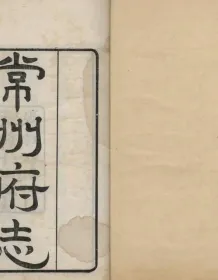 常州府志